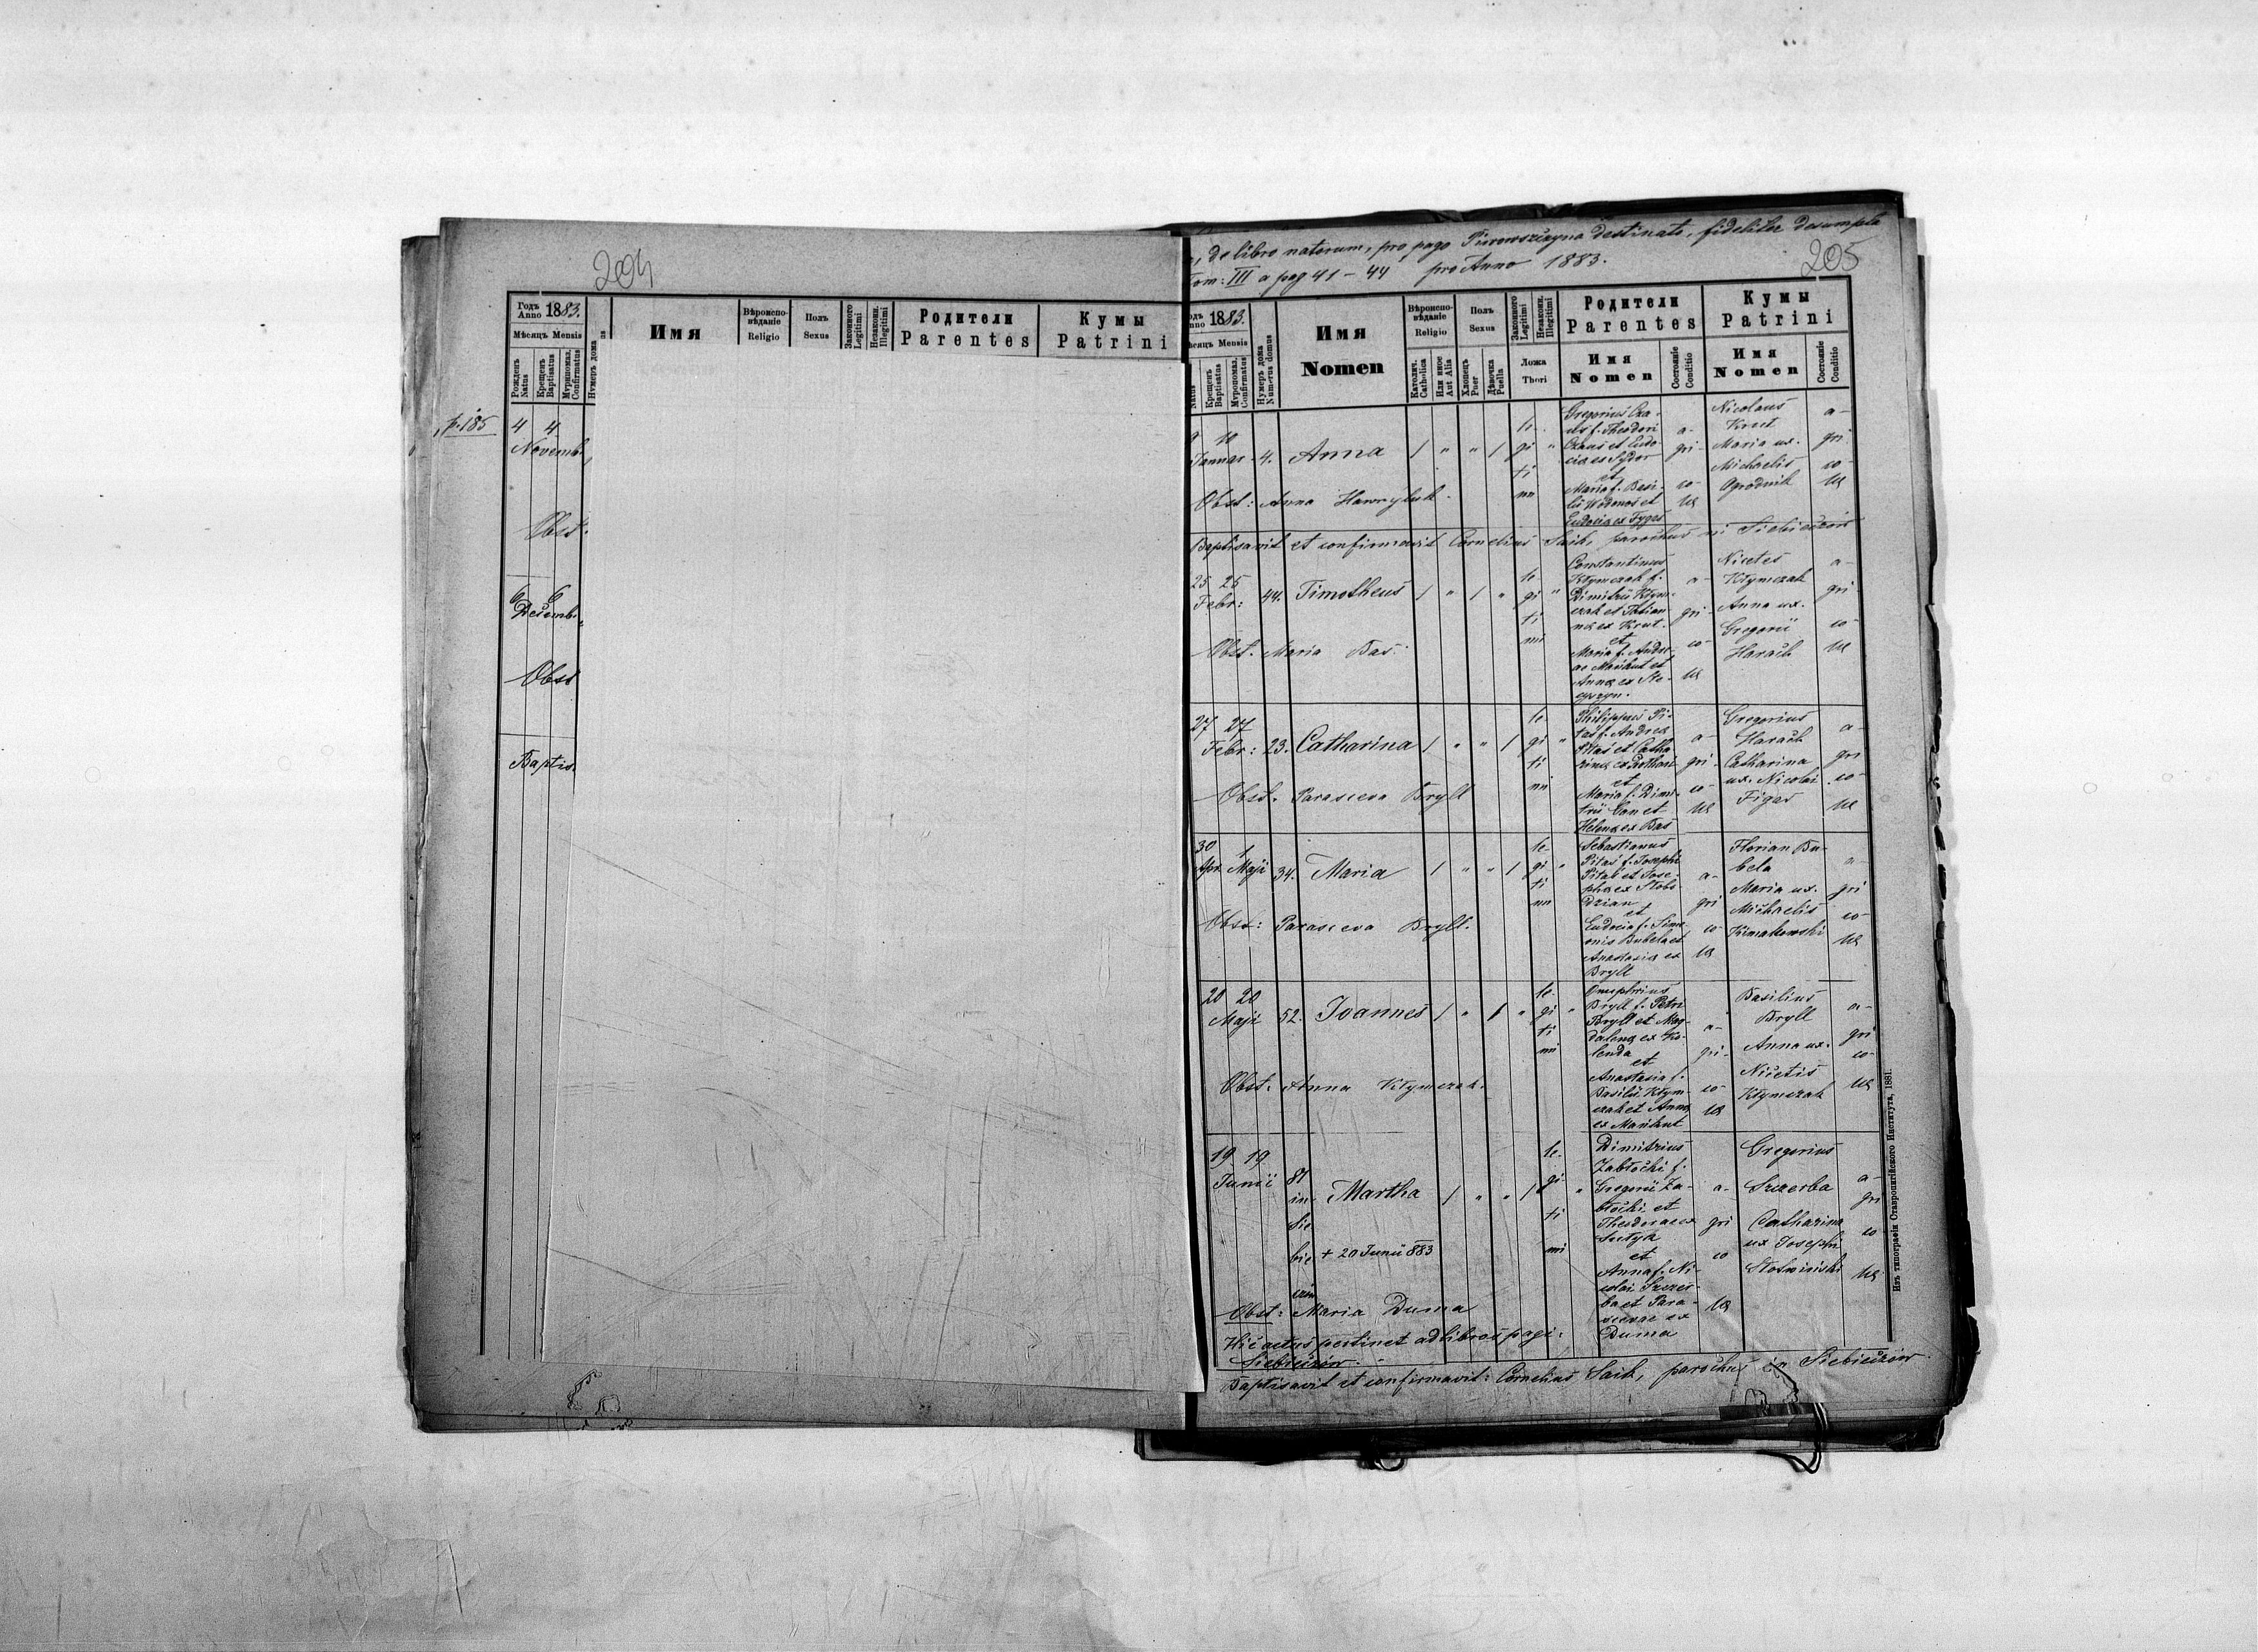 204
Годъ Anno 1883.
Мѣсяцъ Mensis
Рожденъ Natus
Крещенъ Baptisatus
Мѵропомаз. Confirmatus
Нумеръ дома
Имя
Вѣроиспо-
вѣданіе
Religio
Полъ
Sexus
Законного Legitimi
Незаконн. Illegitimi
Родители
Parentes
Кумы
Patrini
p. 185
4 4
Novemb.
Obst.
6 6
Decemb.
Obst
Baptis.
205
de libro natorum, pro pago destinato, fideliter desumpta
Tom: III a pag 41 - 44 pro Anno 1883.
1883.
Мѣсяцъ Mensis
Natus
Крещенъ Baptisatus
Мѵропомаз. Confirmatus
Нумеръ дома Numerus domus
Имя
Nomen
Вѣроиспо-
вѣданіе
Religio
Католич. Catholica
Или иное Aut Alia
Полъ
Sexus
Хлопецъ Puer
Дѣвочка Puella
Законного Legitimi
Незаконн. Illegitimi
Ложа
Thori
Родители
Parentes
Имя
Nomen
Состояніе Conditio
Кумы
Patrini
Имя
Nomen
Состояніе Conditio
9 10
Januar 4. Anna / " " / le- gi- ti mi "
Gregorius
f. Theodori
et Eudo-
cia ex Sydor
et
Maria f. Basi-
lii Wodonos et
Eudocia ex
a- gri- co- la
Nicolaus
Krut
Maria ux.
Michaelis
Ogrodnik
a- gri co- la
Obst: Anna Hawryluk.
Baptisavit et confirmavit Cornelius Saik, parochus in Siebieczów
25 25
Febr: 44. Timotheus / " / " le- gi ti mi "
Constantinus
Kłymczak f.
Dimitrii Kłym-
czak et Tatian-
na ex Krut.
et
Maria f. Andre-
ae Marikut et
Anna ex Ste-
a- gri- co- la
Nicetes
Kłymczak
Anna ux.
Gregorii
Harach
a- gri co- la
Obst. Maria Bas.
27 27
Febr: 23. Catharina / " " / le- gi ti mi "
Philippus Pi-
tas f. Andrea
Pitas et Catha
rina ex
et
Maria f. Dimi-
trii et
Helena ex Bas
a- gri- co- la
Gregorius
Harach
Catharina
ux. Nicolai
Figas
a- gri co- la
Obst. Parasceva Bryll
30 1
Apr. Maji 34. Maria / " " / le- gi ti mi "
Sebastianus
Pitas f. Josephi
Pitas et Jose-
pha ex Stobi
dzian
et
Eudocia f. Simo-
onis Bubela et
Anastasia ex
Bryll
a- gri co- la
Florian Bu-
bela
Maria ux.
Michaelis
Kimakowski
a- gri co- la
Obst: Parasceva Bryll.
20 20
Maji 52. Joannes / " / " le- gi ti mi "
Onuphrius
Bryll f. Petri
Bryll et Mag-
dalena ex Ko-
lenda
et
Anastasia f.
Basilii Kłym-
czak et Anna
ex Marikut
a- gri- co- la
Basilius
Bryll
Anna ux.
Nicetis
Kłymczak
a- gri co- la
Obst. Anna Kłymczak.
19 19
Junii 81 in Sie bie czów Martha / " " / le- gi- ti mi "
+ 20 Junii 883
Dimitrius
Zabłocki f.
Gregorii Za-
błocki et
Theodora ex
et
Anna f. Ni-
colai Szczer-
ba et Para-
scevae ex
Duma
a- gri co la
Gregorius
Szczerba
Catharina
ux Josephi
Słotwiński
a- gri co- la
Obst: Maria Duma
Hic actus pertinet ad libros pagi:
Siebieczów.
Baptisavit et confirmavit: Cornelius Saik, parochus in Siebieczów.
Изъ типографіи Ставропигійского Института, 1881.